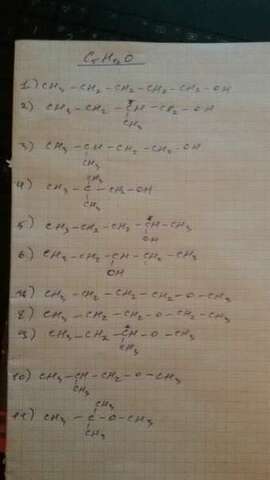 C5H12O
1) CH3 - CH2 - CH2 - CH2 - CH2 - OH
2) CH3 - CH2 - *CH - CH2 - OH
CH3
3) CH3 - CH - CH2 - CH2 - OH
CH3
CH3
4) CH3 - C - CH2 - OH
CH3
5) CH3 - CH2 - CH2 - *CH - CH3
OH
6) CH3 - CH2 - CH - CH2 - CH3
OH
CH3 - CH2 - CH2 - CH2 - O - CH3
8) CH3 - CH2 - CH2 - O - CH2 - CH3
9) CH3 - CH2 - *CH - O - CH3
CH3
10) CH3 - CH - CH2 - O - CH3
CH3
CH3
11) CH3 - C - O - CH3
CH3